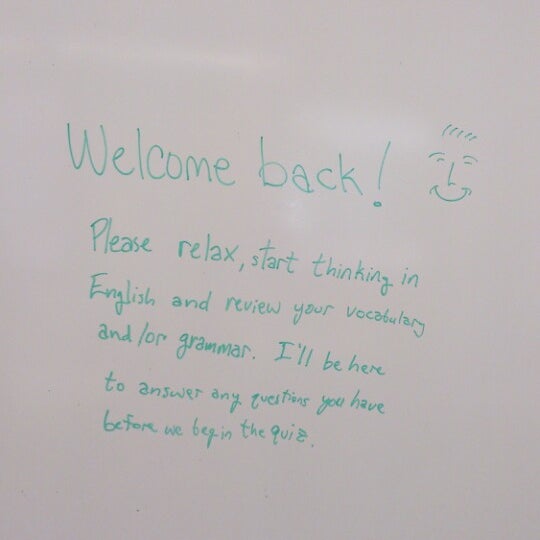 Welcome back!
Please relax, start thinking in
English and review your vocabulary
and/or grammar. I'll be here
to answer any questions you have
before we begin the quiz.